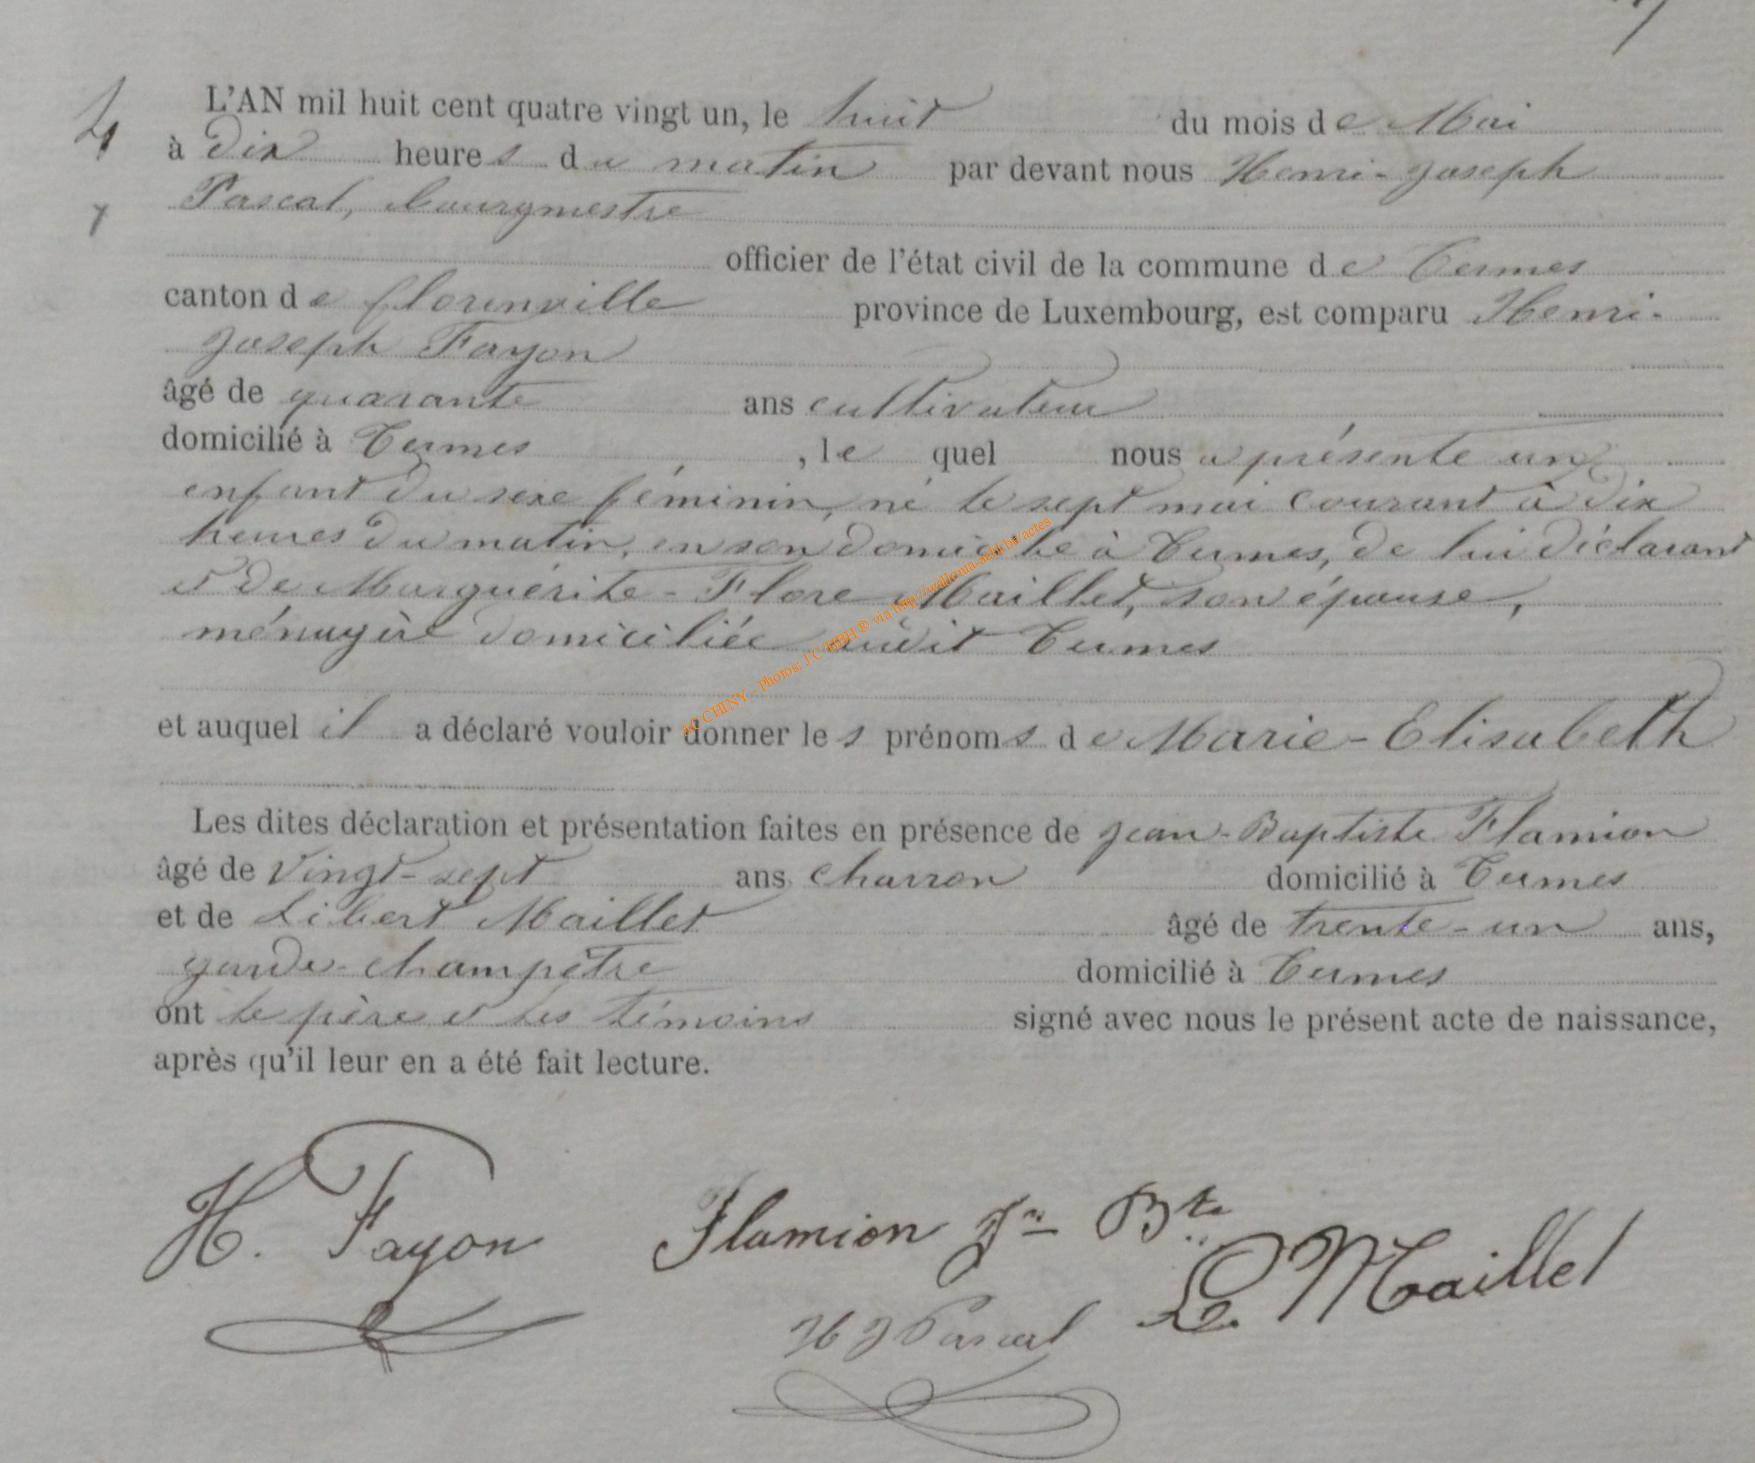 4
L'AN mil huit cent quatre vingt un, le huit du mois de Mai
à dix heures du matin par devant nous Henri-Joseph
Pascal, bourgmestre
officier de l'état civil de la commune de Termes
canton de florenville province de Luxembourg, est comparu Henri-
Joseph Fayon
âgé de quarante ans cultivateur
domicilié à Termes , le quel nous a présenté un
enfant du sexe féminin, né le sept mai courant à dix
heures du matin, en son domicile à Termes, de lui déclarant
et de Marguérite-Flore Maillet, son épouse,
ménagère domiciliée audit Termes
et auquel il a déclaré vouloir donner les prénoms de Marie-Elisabeth
Les dites déclaration et présentation faites en présence de Jean-Baptiste Flamion
âgé de vingt-sept ans charron domicilié à Termes
et de Libert Maillet âgé de trente-un ans,
garde-champêtre domicilié à Termes
ont le père et les témoins signé avec nous le présent acte de naissance,
après qu'il leur en a été fait lecture.
H. Fayon Flamion Jn Bte
HJ Pascal L. Maillet
AC CHINY - Photos: J.C HBH ® via http://wallonia-asbl.be/actes